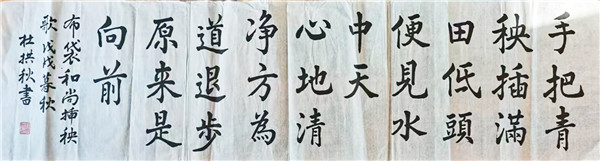 手把青
秧插滿
田低頭
便見水
中天
心地清
净方為
道退步
原来是
向前
布袋和尚插秧
歌戊戌暮秋
杜拱秋書